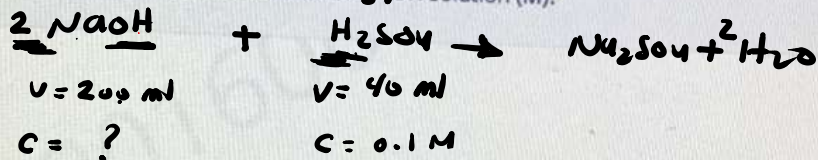 2 NaOH + H2SO4 → Na2SO4 + 2 H2O
V = 200 ml V = 40 ml
C = ? C = 0.1 M